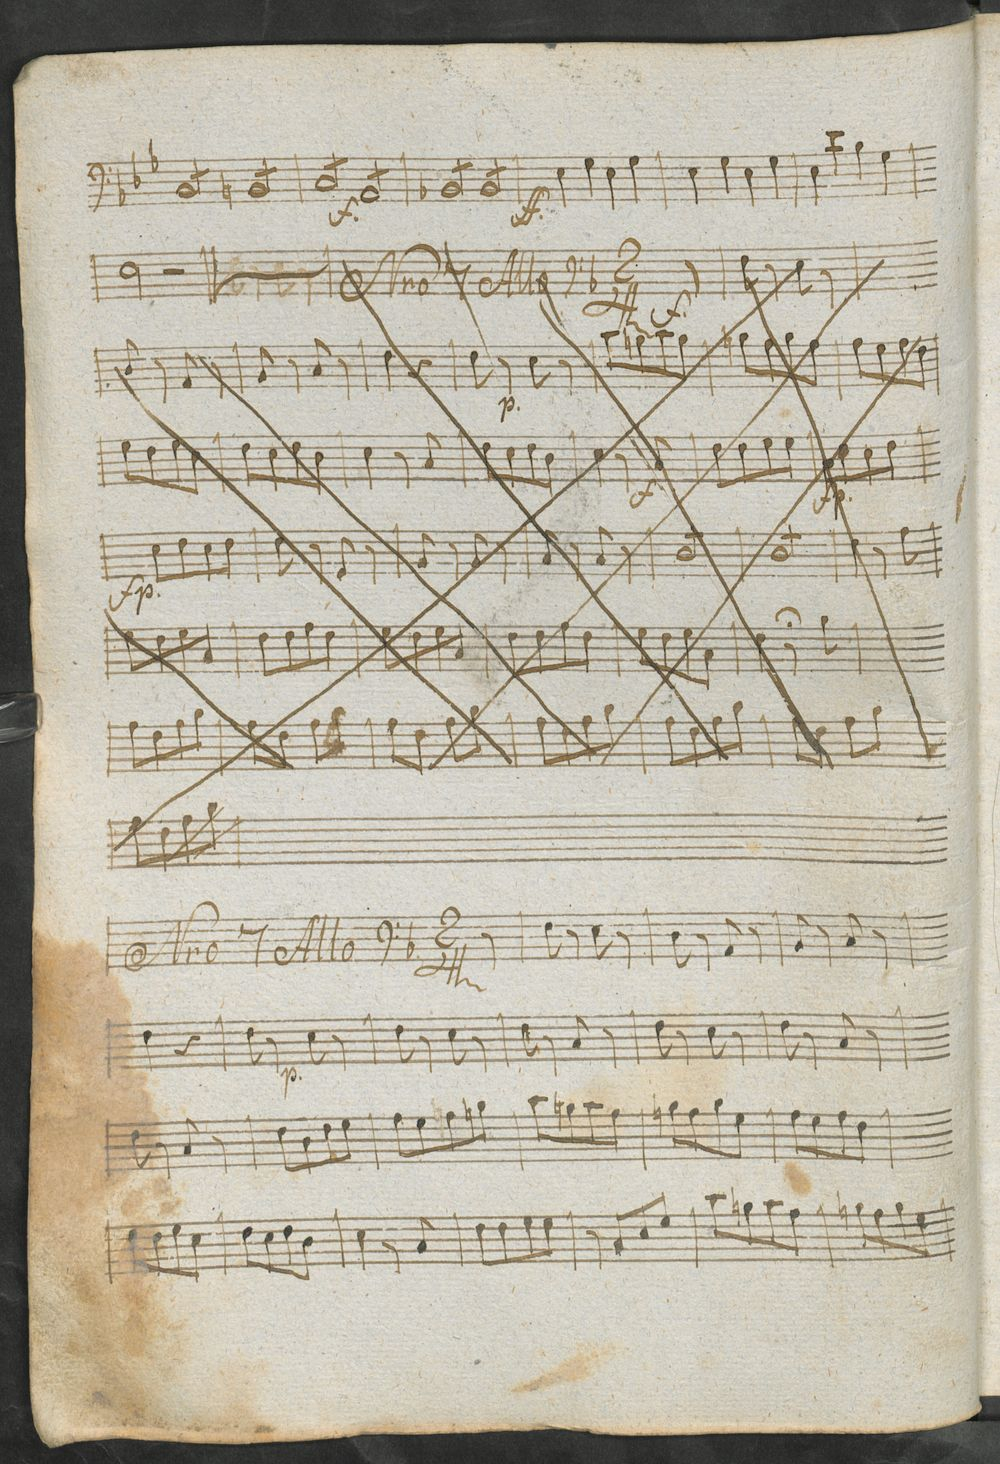 f. ff.
Nro 7 Allo 2/4 f.
p.
f. fp.
fp.
Nro 7 Allo 2/4
p.